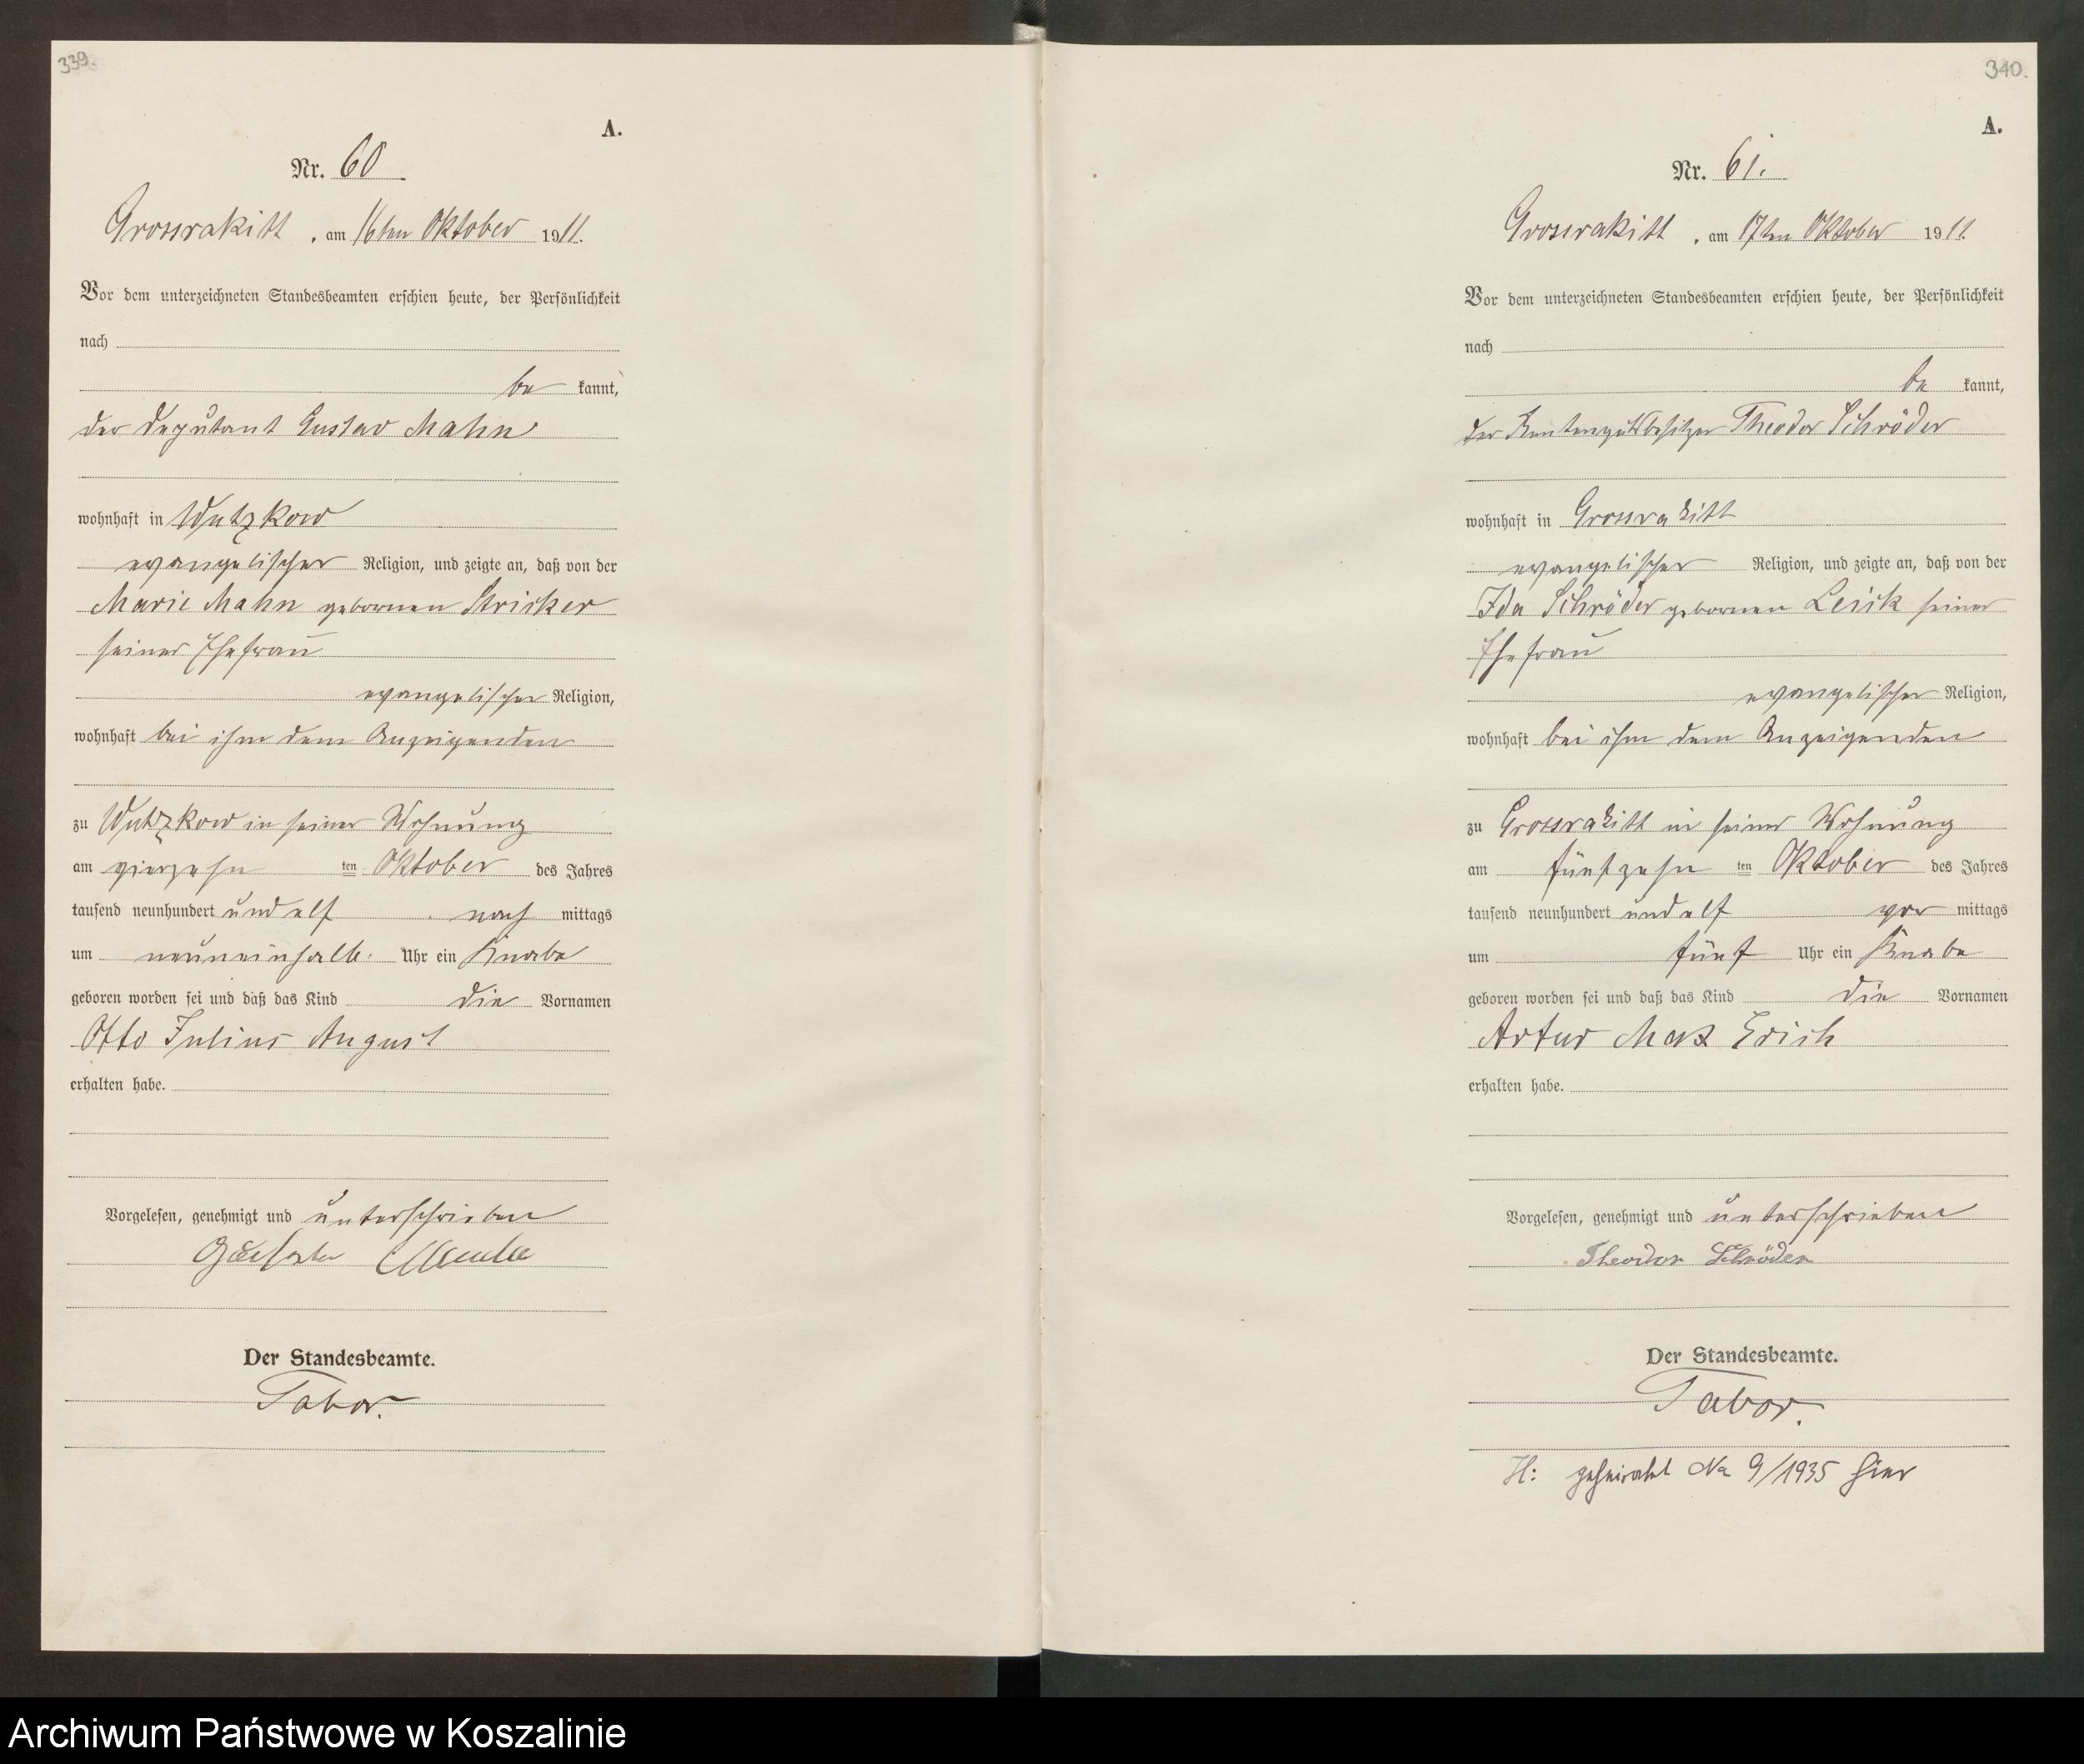 339.
A.
Nr. 60
Grossrakitt, am 16ten Oktober 1911.
Vor dem unterzeichneten Standesbeamten erschien heute, der Persönlichkeit
nach
be kannt,
der Deputant Gustav Mahn
wohnhaft in Wutzkow
evangelischer Religion, und zeigte an, daß von der
Marie Mahn gebornen Stricker
seiner Ehefrau
evangelischer Religion,
wohnhaft bei ihm dem Anzeigenden
zu Wutzkow in seiner Wohnung
am vierzehn ten Oktober des Jahres
tausend neunhundert und elf nach mittags
um neuneinhalb Uhr ein Knabe
geboren worden sei und daß das Kind die Vornamen
Otto Julius August
erhalten habe.
Vorgelesen, genehmigt und unterschrieben
Der Standesbeamte.
Tabor.
340.
A.
Nr. 61.
Grossrakitt, am 17ten Oktober 1911.
Vor dem unterzeichneten Standesbeamten erschien heute, der Persönlichkeit
nach
be kannt,
der Rentengutsbesitzer Theodor Schröder
wohnhaft in Grossrakitt
evangelischer Religion, und zeigte an, daß von der
Ida Schröder gebornen Leick seiner
Ehefrau
evangelischer Religion,
wohnhaft bei ihm dem Anzeigenden
zu Grossrakitt in seiner Wohnung
am fünfzehn ten Oktober des Jahres
tausend neunhundert und elf vor mittags
um fünf Uhr ein Knabe
geboren worden sei und daß das Kind die Vornamen
Artur Max Erich
erhalten habe.
Vorgelesen, genehmigt und unterschrieben
Theodor Schröder
Der Standesbeamte.
Tabor.
H: geheiratet No 9/1935 hier
Archiwum Państwowe w Koszalinie